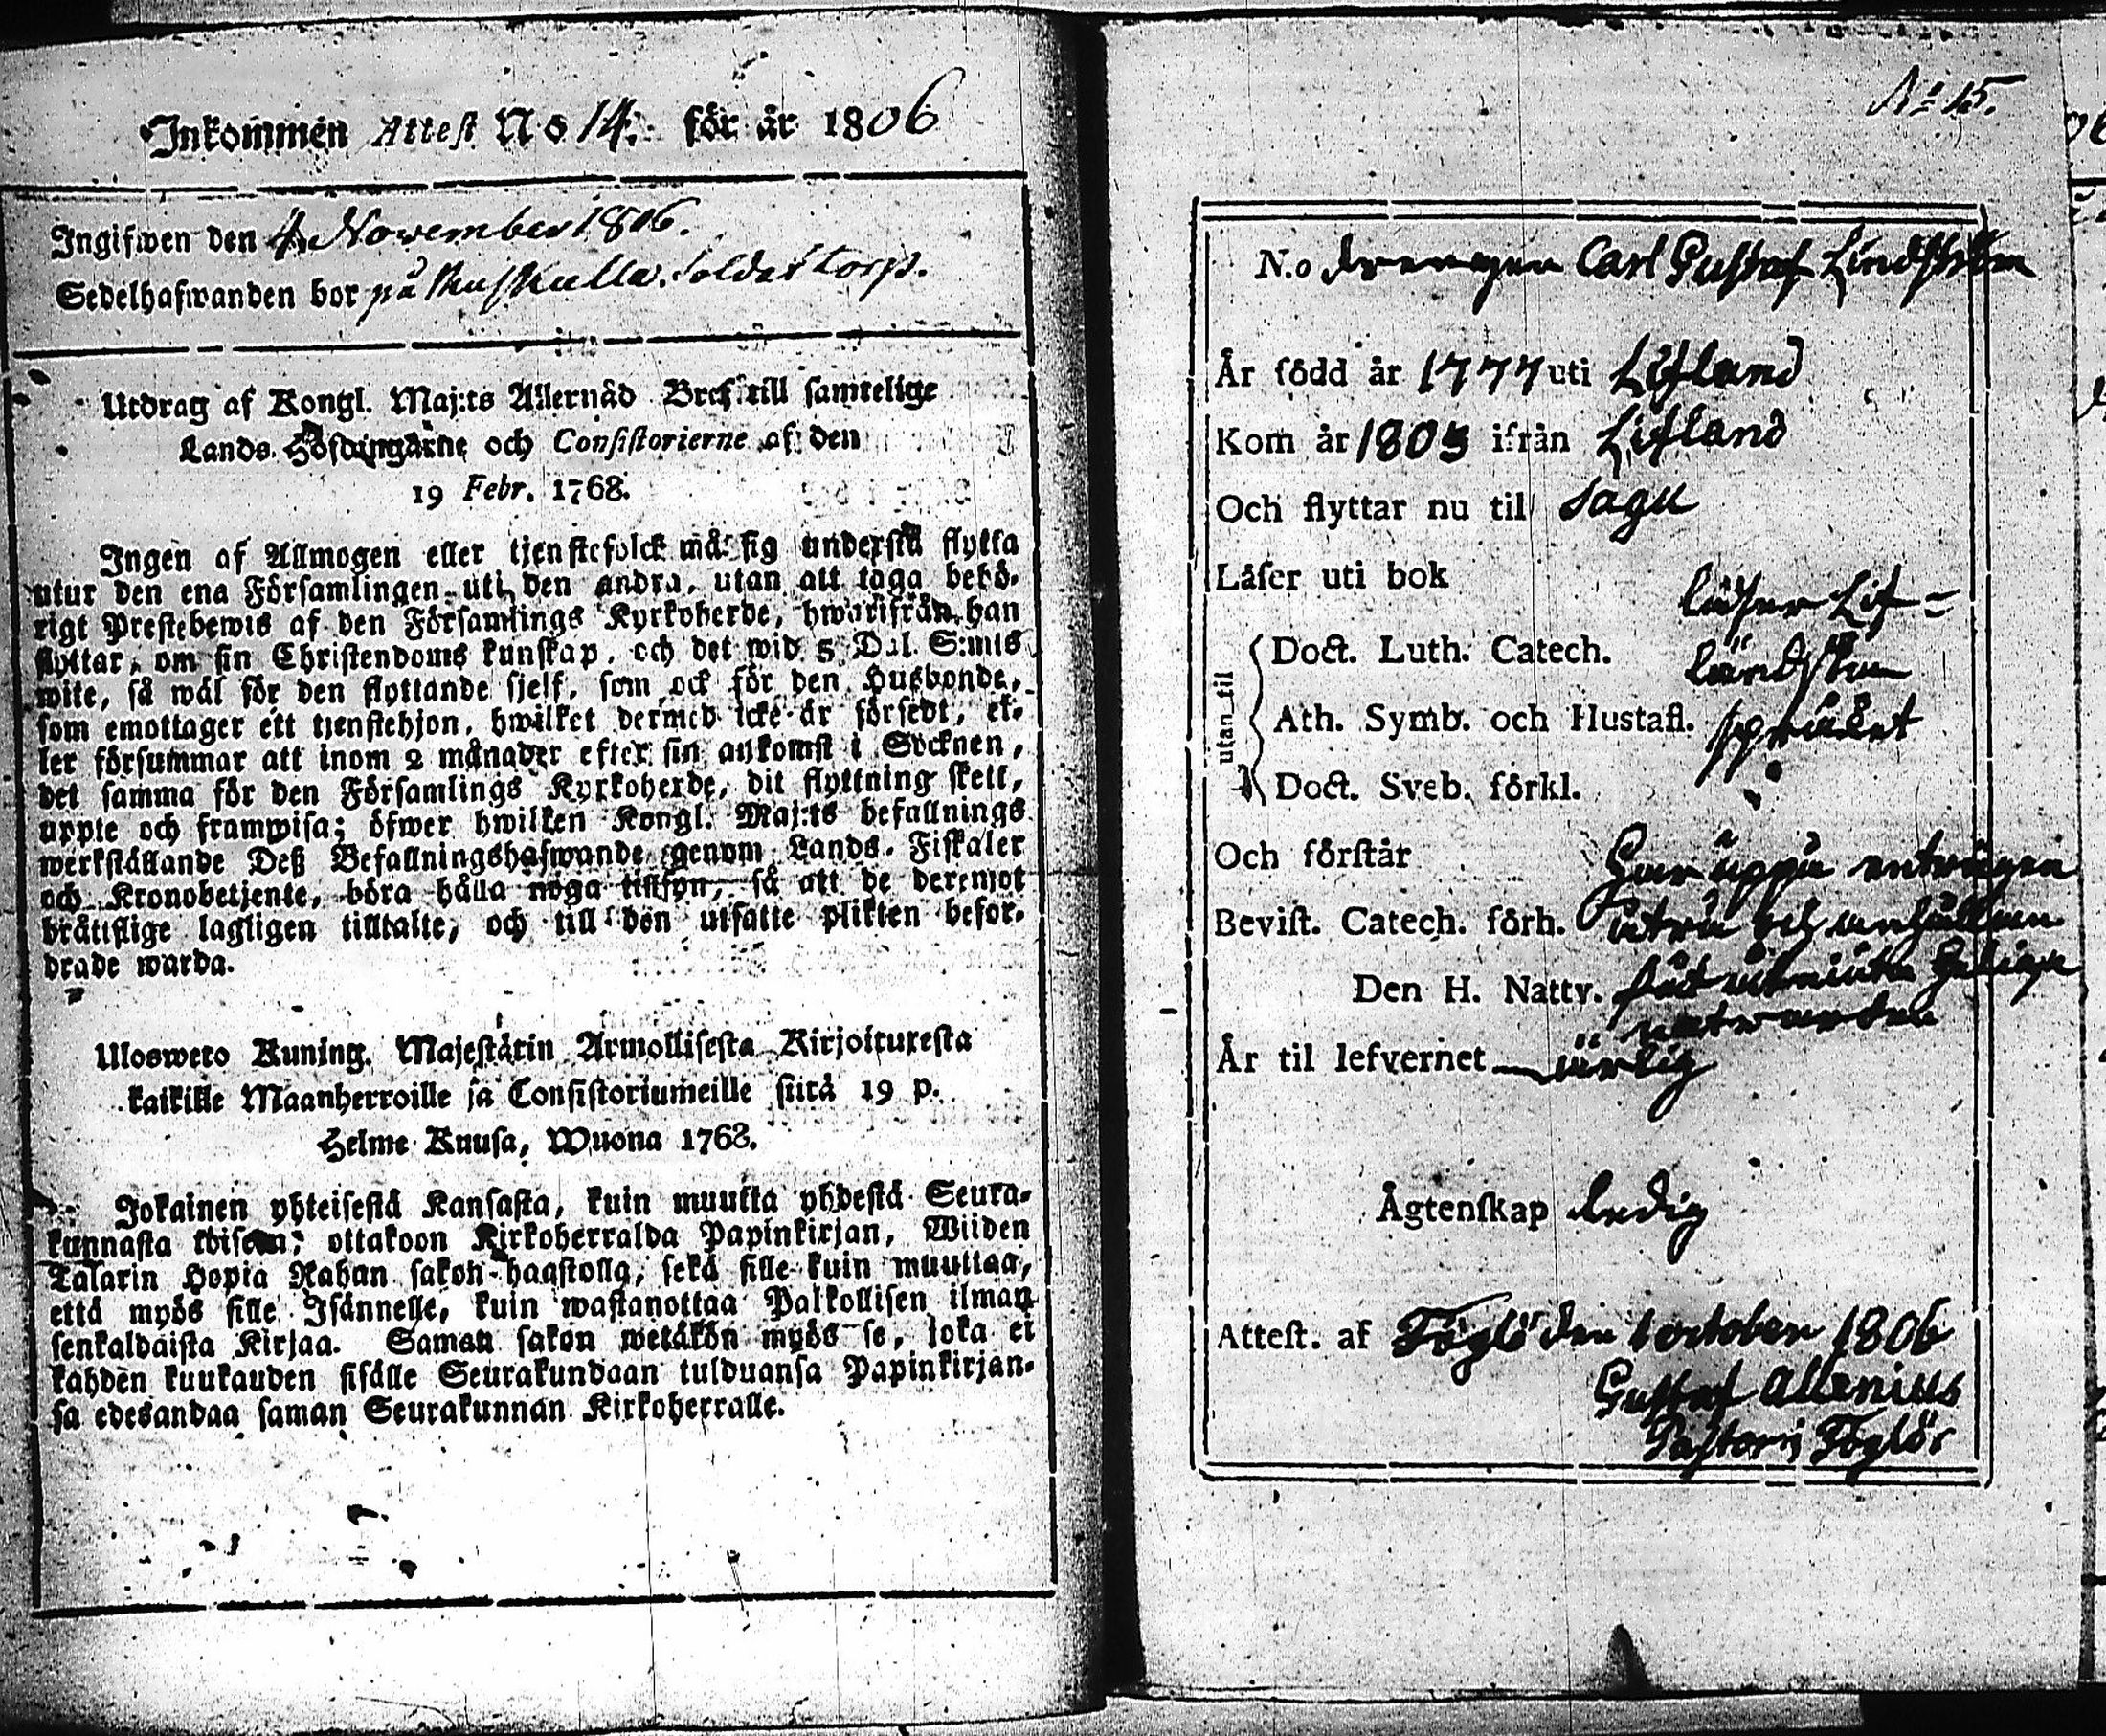 Inkommen Attest No 14. för år 1806
Ingifwen den 4 November 1806.
Sedelhafwanden bor på Soldat torp.
Utdrag af Kongl. Maj:ts Allernåd Bref till samtelige
Lands. Höfdingarne och Consistorierne af den
19 Febr. 1768.
Ingen af Allmogen eller tjenstefolck må sig understå flytta
utur den ena Församlingen uti den andra, utan att taga behö-
rigt Prestebewis af den Församlings Kyrkoherde, hwarifrån han
flyttar, om sin Christendoms kunskap, och det wid 5 Dal. S:mts
wite, så wäl för den flyttande sjelf, som ock för den Husbonde,
som emottager ett tjenstehjon, hwilket dermed icke är försedt, el-
ler försummar att inom 2 månader efter sin ankomst i Socknen,
det samma för den Församlings Kyrkoherde, dit flyttning skett,
uppte och framwisa; öfwer hwilken Kongl. Maj:ts befallnings
werkställande Deß Befallningshafwande genom Lands. Fiskaler
och Kronobetjente, böra hålla noga tillsyn, så att de deremot
bråttslige lagligen tilltalte, och till den utsatte plikten befor-
drade warda.
Ulosweto Kuning. Majestätin Armollisesta Kirjoituxesta
kaikille Maanherroille ja Consistoriumeille siitä 19 p.
Helme Kuusa, Wuona 1768.
Jokainen yhteisestä Kansasta, kuin muutta yhdestä Seura-
kunnasta toiseen; ottakoon Kirkoherralda Papinkirjan, Wiiden
Talarin Hopia Rahan sakon haastolla, sekä sille kuin muuttaa,
että myös sille Isännelle, kuin wastanottaa Palkollisen ilman
senkaldaista Kirjaa. Saman sakon wetäkön myös se, joka ei
kahden kuukauden sisälle Seurakundaan tulduansa Papinkirjan-
sa edesandaa saman Seurakunnan Kirkoherralle.
No 15.
N.o drengen Carl Gustaf Lindström
Är född år 1777 uti Lifland
Kom år 1805 ifrån Lifland
Och flyttar nu til Sagu
Läser uti bok
läser Lif=
utan til
Doct. Luth. Catech.
ländska
Ath. Symb. och Hustafl.
språket
Doct. Sveb. förkl.
Och förstår Har uppå enträgen
Bevist. Catech. förh. anhållan
Den H. Nattv. fåt Helige
nattvarden
Är til lefvernet ärlig
Ägtenskap ledig
Attest. af Föglö den 1 october 1806
Gustaf Allenius
Pastoris Föglö